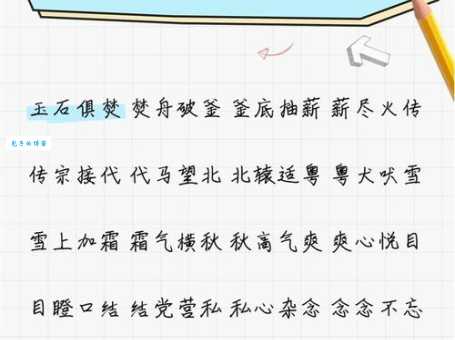 玉石俱焚 焚舟破釜 釜底抽薪 薪尽火传
传宗接代 代马望北 北辕适粤 粤犬吠雪
雪上加霜 霜气横秋 秋高气爽 爽心悦目
目瞪口结 结党营私 私心杂念 念念不忘